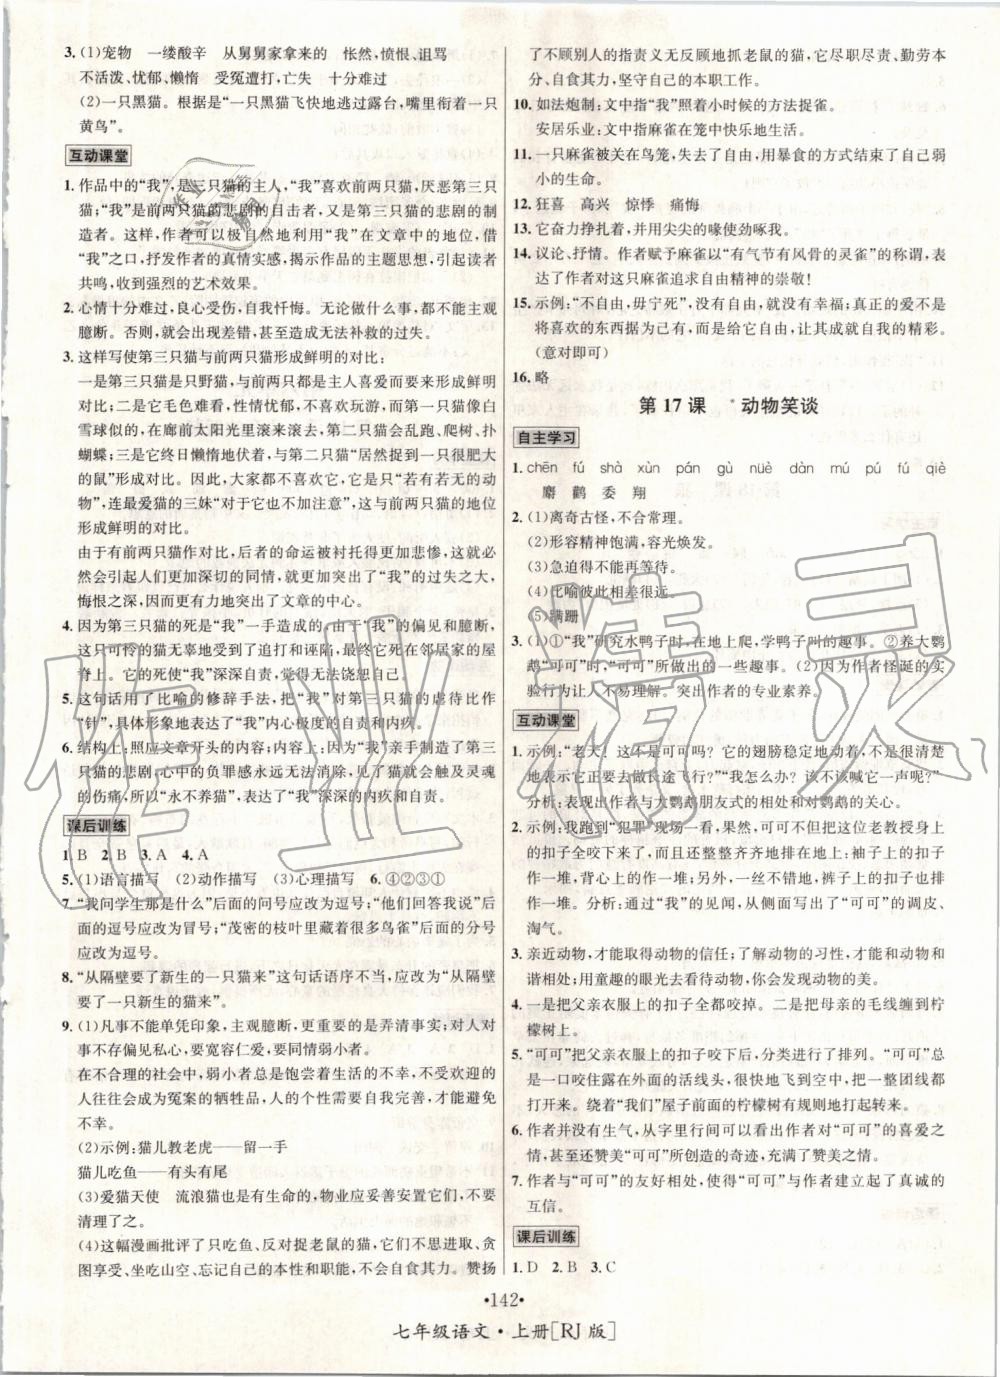 3. (1)宠物 一缕酸辛 从舅舅家拿来的 怅然,愤恨、诅骂
不活泼、忧郁、懒惰 受冤遭打,亡失 十分难过
(2)一只黑猫。根据是“一只黑猫飞快地逃过露台,嘴里衔着一只
黄鸟”。
互动课堂
1. 作品中的“我”,是三只猫的主人,“我”喜欢前两只猫,厌恶第三只
猫;“我”是前两只猫的悲剧的目击者,又是第三只猫的悲剧的制
造者。这样,作者可以极自然地利用“我”在文章中的地位,借
“我”之口,抒发作者的真情实感,揭示作品的主题思想,引起读者
共鸣,收到强烈的艺术效果。
2. 心情十分难过,良心受伤,自我忏悔。无论做什么事,都不能主观
臆断。否则,就会出现差错,甚至造成无法补救的过失。
3. 这样写使第三只猫与前两只猫形成鲜明的对比:
一是第三只猫是只野猫,与前两只都是主人喜爱而要来的形成鲜明
对比;二是它毛色难看,性情忧郁,不喜欢玩游,而第一只猫像白
雪球似的,在廊前太阳光里滚来滚去,第二只猫会爬乱跑、爬树、扑
蝴蝶;三是它终日懒惰地伏着,与活泼好动的前两只猫也形成鲜明
的对比。因此,大家都不大喜欢它,它在家里是“若有若无的动
物”,连最爱猫的三妹“对于它也不加注意”,这与前两只猫的地位
形成鲜明的对比。
由于有前两只猫作对比,后者的命运被衬托得更加悲惨,这就必然
会引起人们更加深切的同情,就更加突出了“我”的过失之大、
悔恨之深,因而更有力地突出了文章的中心。
4. 因为第三只猫的死是“我”一手造成的。由于“我”的偏见和臆断,
这只可怜的猫无辜地受到了追打和诬陷,最后死在邻居家的屋
脊上。它的死使“我”深深自责,也无法饶恕自己。
5. 这句话运用了比喻的修辞手法,把“我”对第三只猫的虐待比作
“针”,具体形象地表达了“我”内心极度的自责和内疚。
6. 结构上:照应文章开头的内容;内容上:因为“我”亲手制造了第三
只猫的悲剧,心中的负罪感永远无法消除,见了猫就会触及灵魂
的伤痛,所以“永不养猫”,表达了“我”深深的内疚和自责。
课后训练
1. B 2. B 3. A 4. A
5. (1)语言描写 (2)动作描写 (3)心理描写 6. ④②③①
7. “我问学生那是什么”后面的问号应改为逗号;“他们回答我说”后面
的逗号应改为冒号;“茂密的枝叶里藏着很多鸟雀”后面的分号
应改为逗号。
8. “从隔壁要了新生的一只猫来”这句话语序不当,应改为“从隔壁
要了一只新生的猫来”。
9. (1)凡事不能单凭印象,主观臆断,更重要的是弄清事实;对人对
事不存偏见私心,要宽容仁爱,要同情弱小者。
在不合理的社会中,弱小者总是饱尝着生活的不幸,无法掌握自己
的人往往会成为冤案的牺牲品,人的个性需要完善,才能避免
不幸。
(2)示例:猫儿教老虎——留一手
猫儿吃鱼——有头有尾
(3)爱猫天使 流浪猫也是有生命的,物业应妥善安置它们,不要
清理了之。
(4)这幅漫画批评了只吃鱼、反对捉老鼠的猫,讽刺了工作中贪
图享受、坐吃山空、忘记自己的本性和职能,不自食其力。赞扬
了不顾别人的指责义无反顾地抓老鼠的猫,它尽职尽责、勤劳本
分、自食其力,坚守自己的本职工作。
10. 如法炮制:文中指“我”照着小时候的方法捉雀。
安居乐业:文中指麻雀在笼中快乐地生活。
11. 一只麻雀被关在鸟笼,失去了自由,用暴食的方式结束了自己弱
小的生命。
12. 狂喜 高兴 惊悸 痛悔
13. 它奋力挣扎着,并用尖尖的喙使劲啄我。
14. 议论、抒情。作者赋予麻雀以“有气节有风骨的灵雀”的称谓,表
达了作者对这只麻雀追求自由精神的崇敬!
15. 示例:“不自由,毋宁死”,没有自由,就没有幸福;真正的爱不是
将喜欢的东西据为己有,而是给它自由,让其成就自我的精彩。
(意对即可)
16. 略
第 17 课 *动物笑谈
自主学习
1. chēn fú shà xùn pán gù nüè dàn mú pú fú qiè
麝 鹳 委 翔
2. (1)离奇古怪,不合常理。
(2)形容精神饱满,容光焕发。
(3)急迫得不能再等待。
(4)比喻彼此相差很大。
(5)蹒跚
3. (1)①“我”研究水鸭子时,在地上爬,学鸭子叫的趣事。②养大鹦
鹉“可可”时,“可可”所做出的一些趣事。(2)因为作者怪诞的实
验行为让人不易理解。突出作者的专业素养。
互动课堂
1. 示例:“老天!这不是可可吗?它的翅膀稳定地动着,不是很清楚
地表示它正要去做长途飞行?”“我怎么办?该不该喊它一声呢?”
分析:表现出作者与大鹦鹉朋友式的相处和对鹦鹉的关心。
2. 示例:我跑到“犯罪”现场一看,果然,可可不但把这位老教授身上
的扣子全咬下来了,而且还整整齐齐地排在地上:袖子上的扣子
作一堆,背心上的扣子作一堆,还有,一丝不错地,裤子上的扣子也
作一堆。分析:通过“我”的见闻,从侧面表现了“可可”的调皮、
淘气。
3. 亲近动物,才能取得动物的信任;了解动物的习性,才能与动物和
谐相处;用童趣的眼光去看待动物,你会发现动物的美。
4. 一是把父亲衣服上的扣子全都咬掉。二是把母亲的毛线缠到柠
檬树上。
5. “可可”把父亲衣服上的扣子咬下后,分类进行了排列。“可可”总
是一口咬住露在外面的活线头,很快地飞到空中,把一卷线团都
打开来。绕着“我们”屋子前面的柠檬树有规则地打起转来。
6. 作者并没有生气,从字里行间可以看出作者对“可可”的喜爱之
情,甚至还赞美“可可”所创造的奇迹,充满了赞美之情。
7. 作者与“可可”的友好相处,使得“可可”与作者建立起了真诚的
互信。
课后训练
1. D 2. B 3. C
·142·
七年级语文·上册[RJ 版]
作业精灵